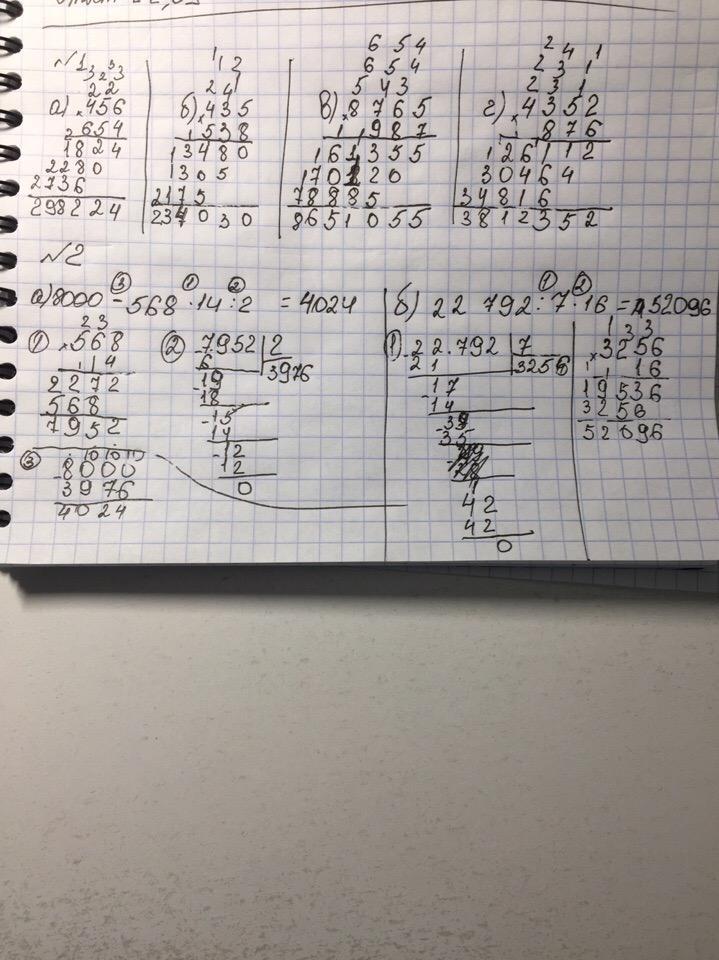 №1
3 2 3 3
2 2
а) × 456
654
1824
2280
2736
298224
1 1 2
2 4 1
б) × 435
538
13480
1305
2175
234030
6 5 4
6 5 4
5 4 3
в) × 8765
987
161355
170120
78885
8651055
2 4 1
2 3 1
2 3 1
г) × 4352
876
126112
30464
34816
3812352
№2
а) 8000 - 568 · 14 : 2 = 4024
① × 568
14
2272
568
7952
② 7952 2
6 3976
19
18
15
14
12
12
0
③ 8000
3976
4024
б) 22 792 : 7 · 16 = 52096
① 22.792 7
21 3256
17
14
39
35
42
42
0
1 3 3
× 3256
16
19536
3256
52096